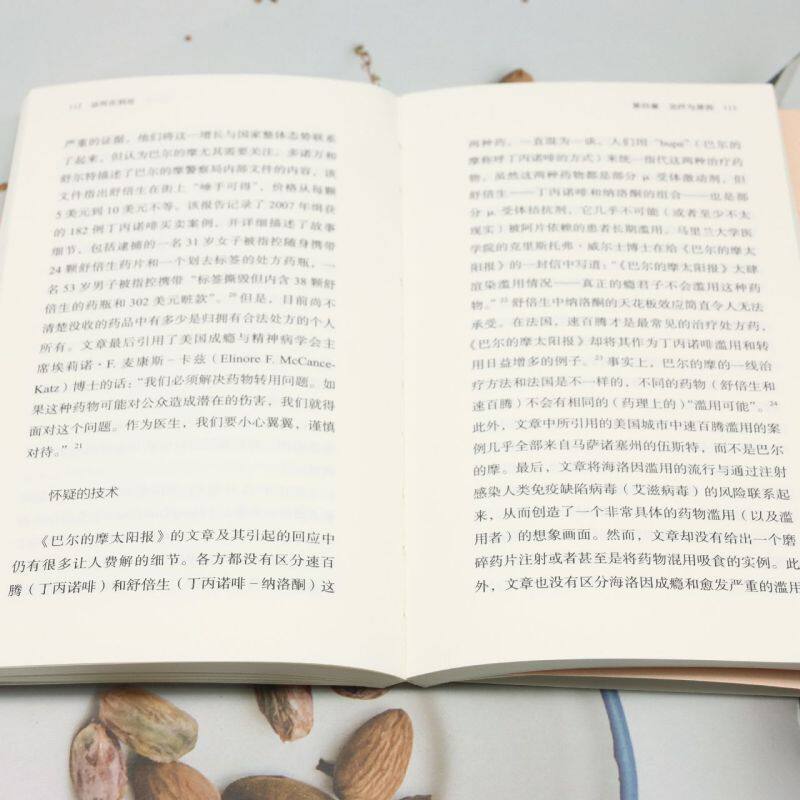 112
严重的证据。他们将这一增长与国家整体态势联系
了起来，但认为巴尔的摩尤其需要关注。多诺万和
舒尔特描述了巴尔的摩警察局内部文件的内容，该
文件指出舒倍生在街上“唾手可得”，价格从每颗
5 美元到 10 美元不等。该报告记录了 2007 年缉获
的 182 例丁丙诺啡买卖案例，并详细描述了故事
细节，包括逮捕的一名 31 岁女子被指控随身携带
24 颗舒倍生药片和一个划去标签的处方药瓶，一
名 53 岁男子被指控携带“标签撕毁但内含 38 颗舒
倍生的药瓶和 302 美元赃款”。20但是，目前尚不
清楚没收的药品中有多少是归拥有合法处方的个人
所有。文章最后引用了美国成瘾与精神病学会主
席埃莉诺·F. 麦康斯－卡兹（Elinore F. McCance-
Katz）博士的话：“我们必须解决药物转用问题。如
果这种药物可能对公众造成潜在的伤害，我们就得
面对这个问题。作为医生，我们要小心翼翼，谨慎
对待。”21
怀疑的技术
《巴尔的摩太阳报》的文章及其引起的回应中
仍有很多让人费解的细节。各方都没有区分速百
腾（丁丙诺啡）和舒倍生（丁丙诺啡－纳洛酮）这
第四章 治疗与原因 113
两种药，一直混为一谈。人们用“bupe”（巴尔的
摩称呼丁丙诺啡的方式）来统一指代这两种治疗药
物。虽然这两种药物都是部分 μ 受体激动剂，但
舒倍生——丁丙诺啡和纳洛酮的组合——也是部
分 μ 受体拮抗剂，它几乎不可能（或者至少不太
现实）被阿片依赖的患者长期滥用。马里兰大学医
学院的克里斯托弗·威尔士博士在给《巴尔的摩太
阳报》的一封信中写道：“《巴尔的摩太阳报》大肆
渲染滥用情况——真正的瘾君子不会滥用这种药
物。”22 舒倍生中纳洛酮的天花板效应简直令人无法
承受。在法国，速百腾才是最常见的治疗处方药，
《巴尔的摩太阳报》却将其作为丁丙诺啡滥用和转
用日益增多的例子。23 事实上，巴尔的摩的一线治
疗方法和法国是不一样的，不同的药物（舒倍生和
速百腾）不会有相同的（药理上的）“滥用可能”。24
此外，文章中所引用的美国城市中速百腾滥用的案
例几乎全部来自马萨诸塞州的伍斯特，而不是巴尔
的摩。最后，文章将海洛因滥用的流行与通过注射
感染人类免疫缺陷病毒（艾滋病毒）的风险联系起
来，从而创造了一个非常具体的药物滥用（以及滥
用者）的想象画面。然而，文章却没有给出一个磨
碎药片注射或者甚至是将药物混用吸食的实例。此
外，文章也没有区分海洛因成瘾和愈发严重的滥用